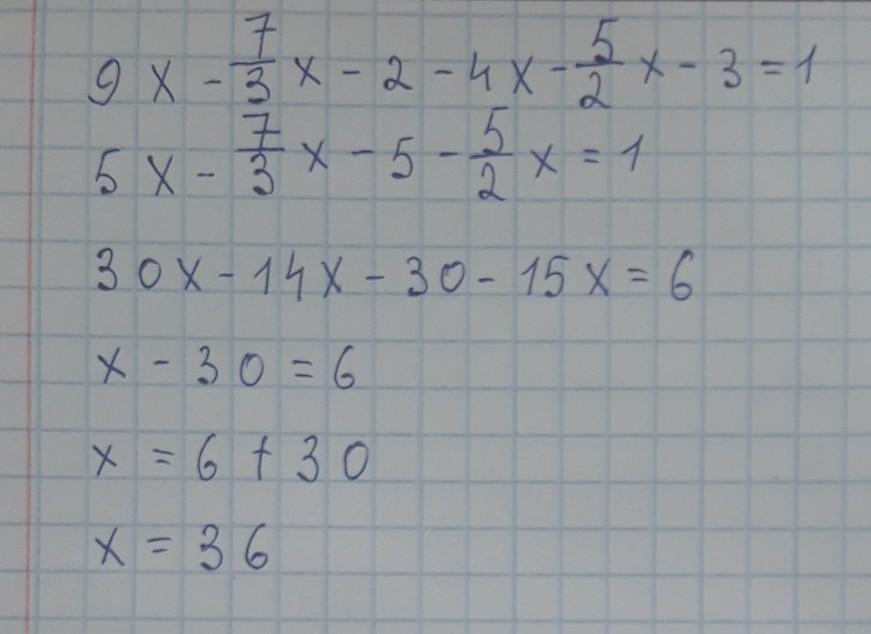 9x - 7/3 x - 2 - 4x - 5/2 x - 3 = 1
5x - 7/3 x - 5 - 5/2 x = 1
30x - 14x - 30 - 15x = 6
x - 30 = 6
x = 6 + 30
x = 36